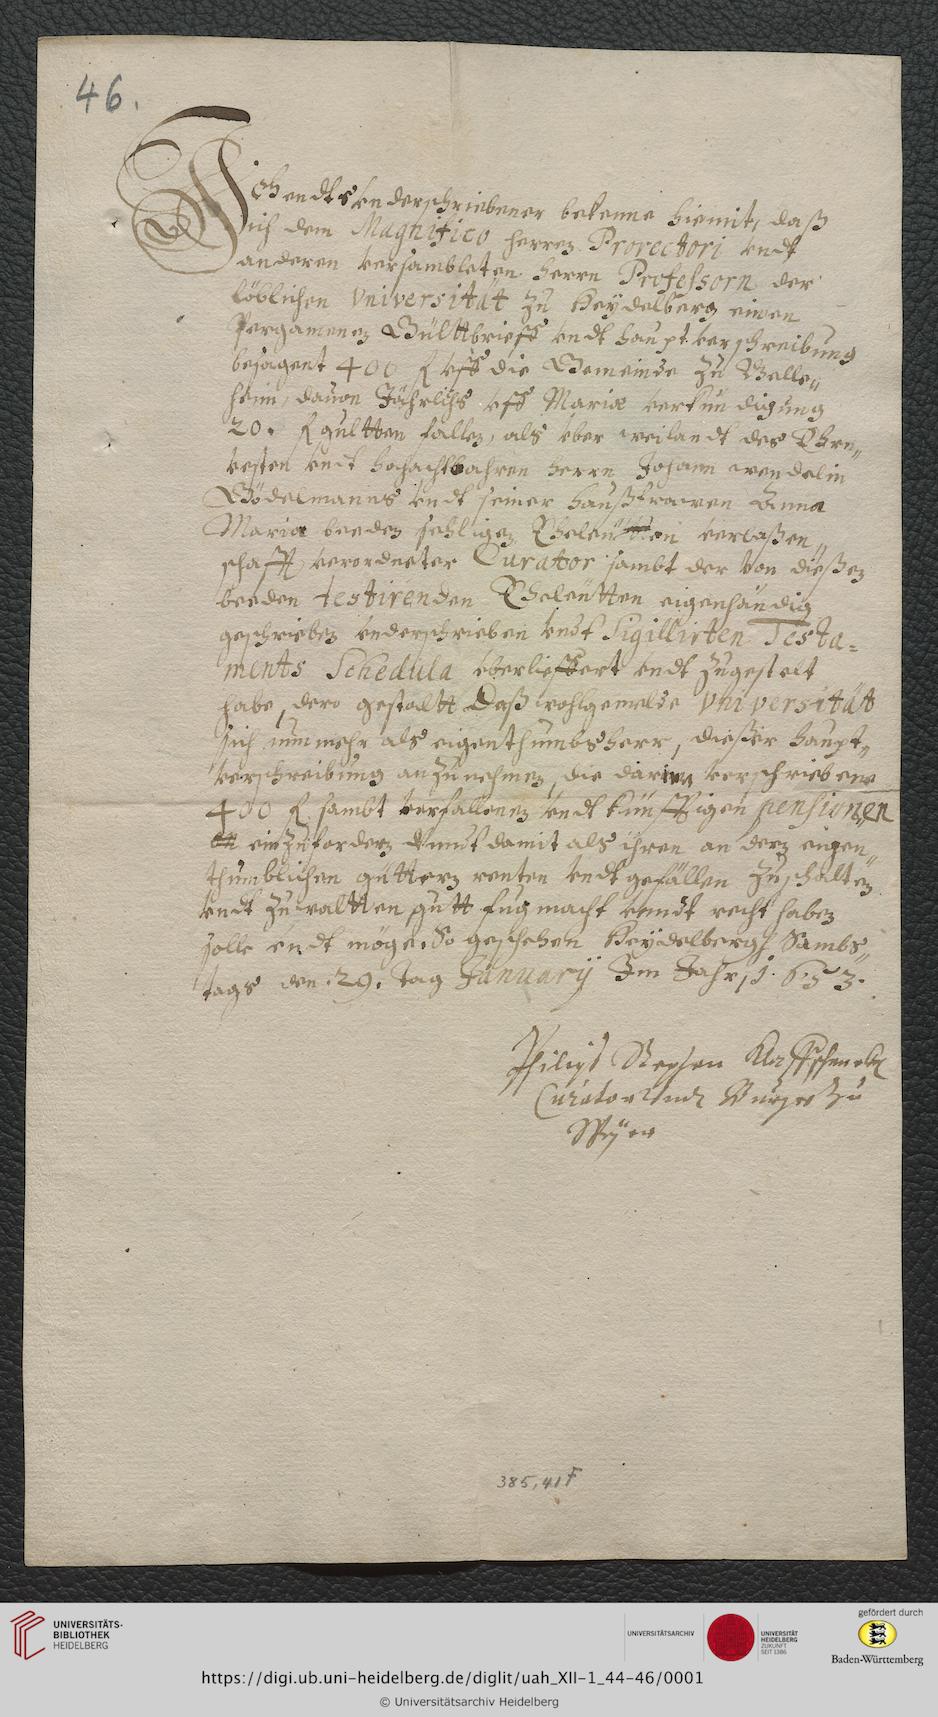 46.
Ich endts vnderschriebener bekenne hiemit, daß
ich dem Magnifico herren Prorectori vndt
anderen versambleten herrn Professorn der
löblichen Vniversität zu Heÿdelberg einen
Pergamenen Gülttbrieff vndt haupt verschreibung
besagent 400 f vff die Gemeinde zu
heim, dauon Jährlichs vff Mariæ verkündigung
20. f gültten fallen, als vber weilandt des Ehrn„
vesten vndt hochachtbahren herrn Johann wendelin
Gödelmanns vndt seiner haußfrawen Anna
Maria beeden sehligen Eheleütten verlaßen„
schafft verordneter Curator sambt der von dießen
beeden testirenden Eheleütten eigenhändig
geschrieben vnderschrieben vndt Sigillirten Testa-
ments Schedula vberlieffert vndt zugestelt
habe, dero gestaltt Daß wohlgemelde Vniversität
sich nunmehr als eigenthumbsherr, dießer haupt„
verschreibung anzunehmen, die darinn verschriebene
400 f sambt verfallenen vndt künfftigen pensionen
einzufordern vnndt damit als ihren anderen eigen„
thumblichen güttern renten vndt gefällen zuschalten
vndt zuwaltten gutt fug macht vnndt recht haben
solle vndt möge. So geschehen Heÿdelberg Sambs„
tags den .29. tag Januarÿ Im Jahr 1653.
Philips Stephan
Curator vndt Burger zu
Speÿer
385,41F
UNIVERSITÄTS-
BIBLIOTHEK
HEIDELBERG
UNIVERSITÄTSARCHIV
UNIVERSITÄT
HEIDELBERG
ZUKUNFT
SEIT 1386
gefördert durch
Baden-Württemberg
https://digi.ub.uni-heidelberg.de/diglit/uah_XII-1_44-46/0001
© Universitätsarchiv Heidelberg